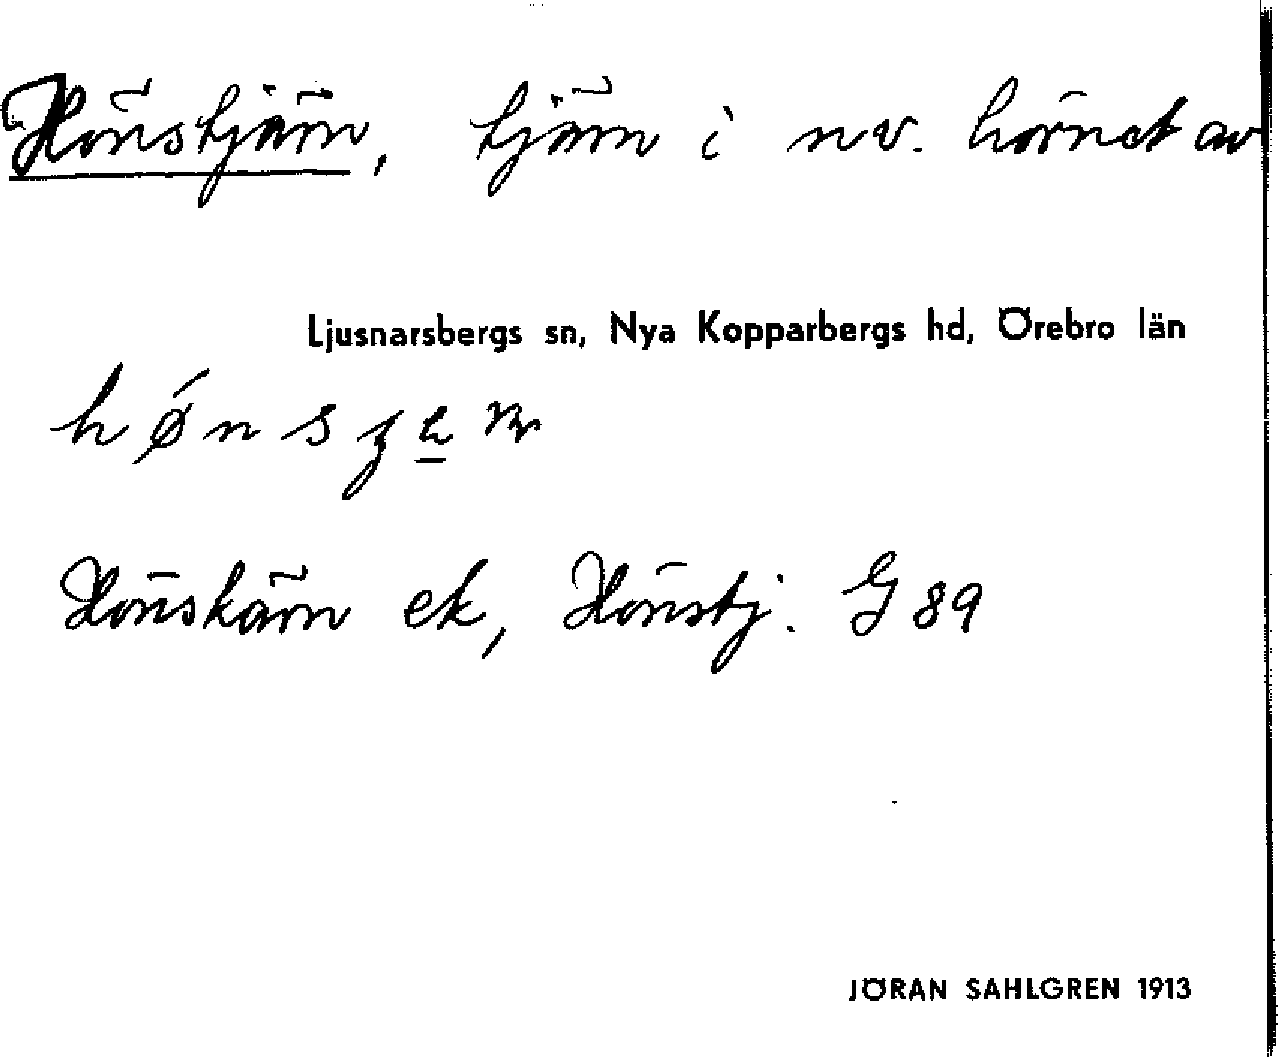 Hönstjärn, tjärn i nv. hörnet av
Ljusnarsbergs sn, Nya Kopparbergs hd, Örebro län
Hönskärn ek, Hönstj. G 89
JÖRAN SAHLGREN 1913